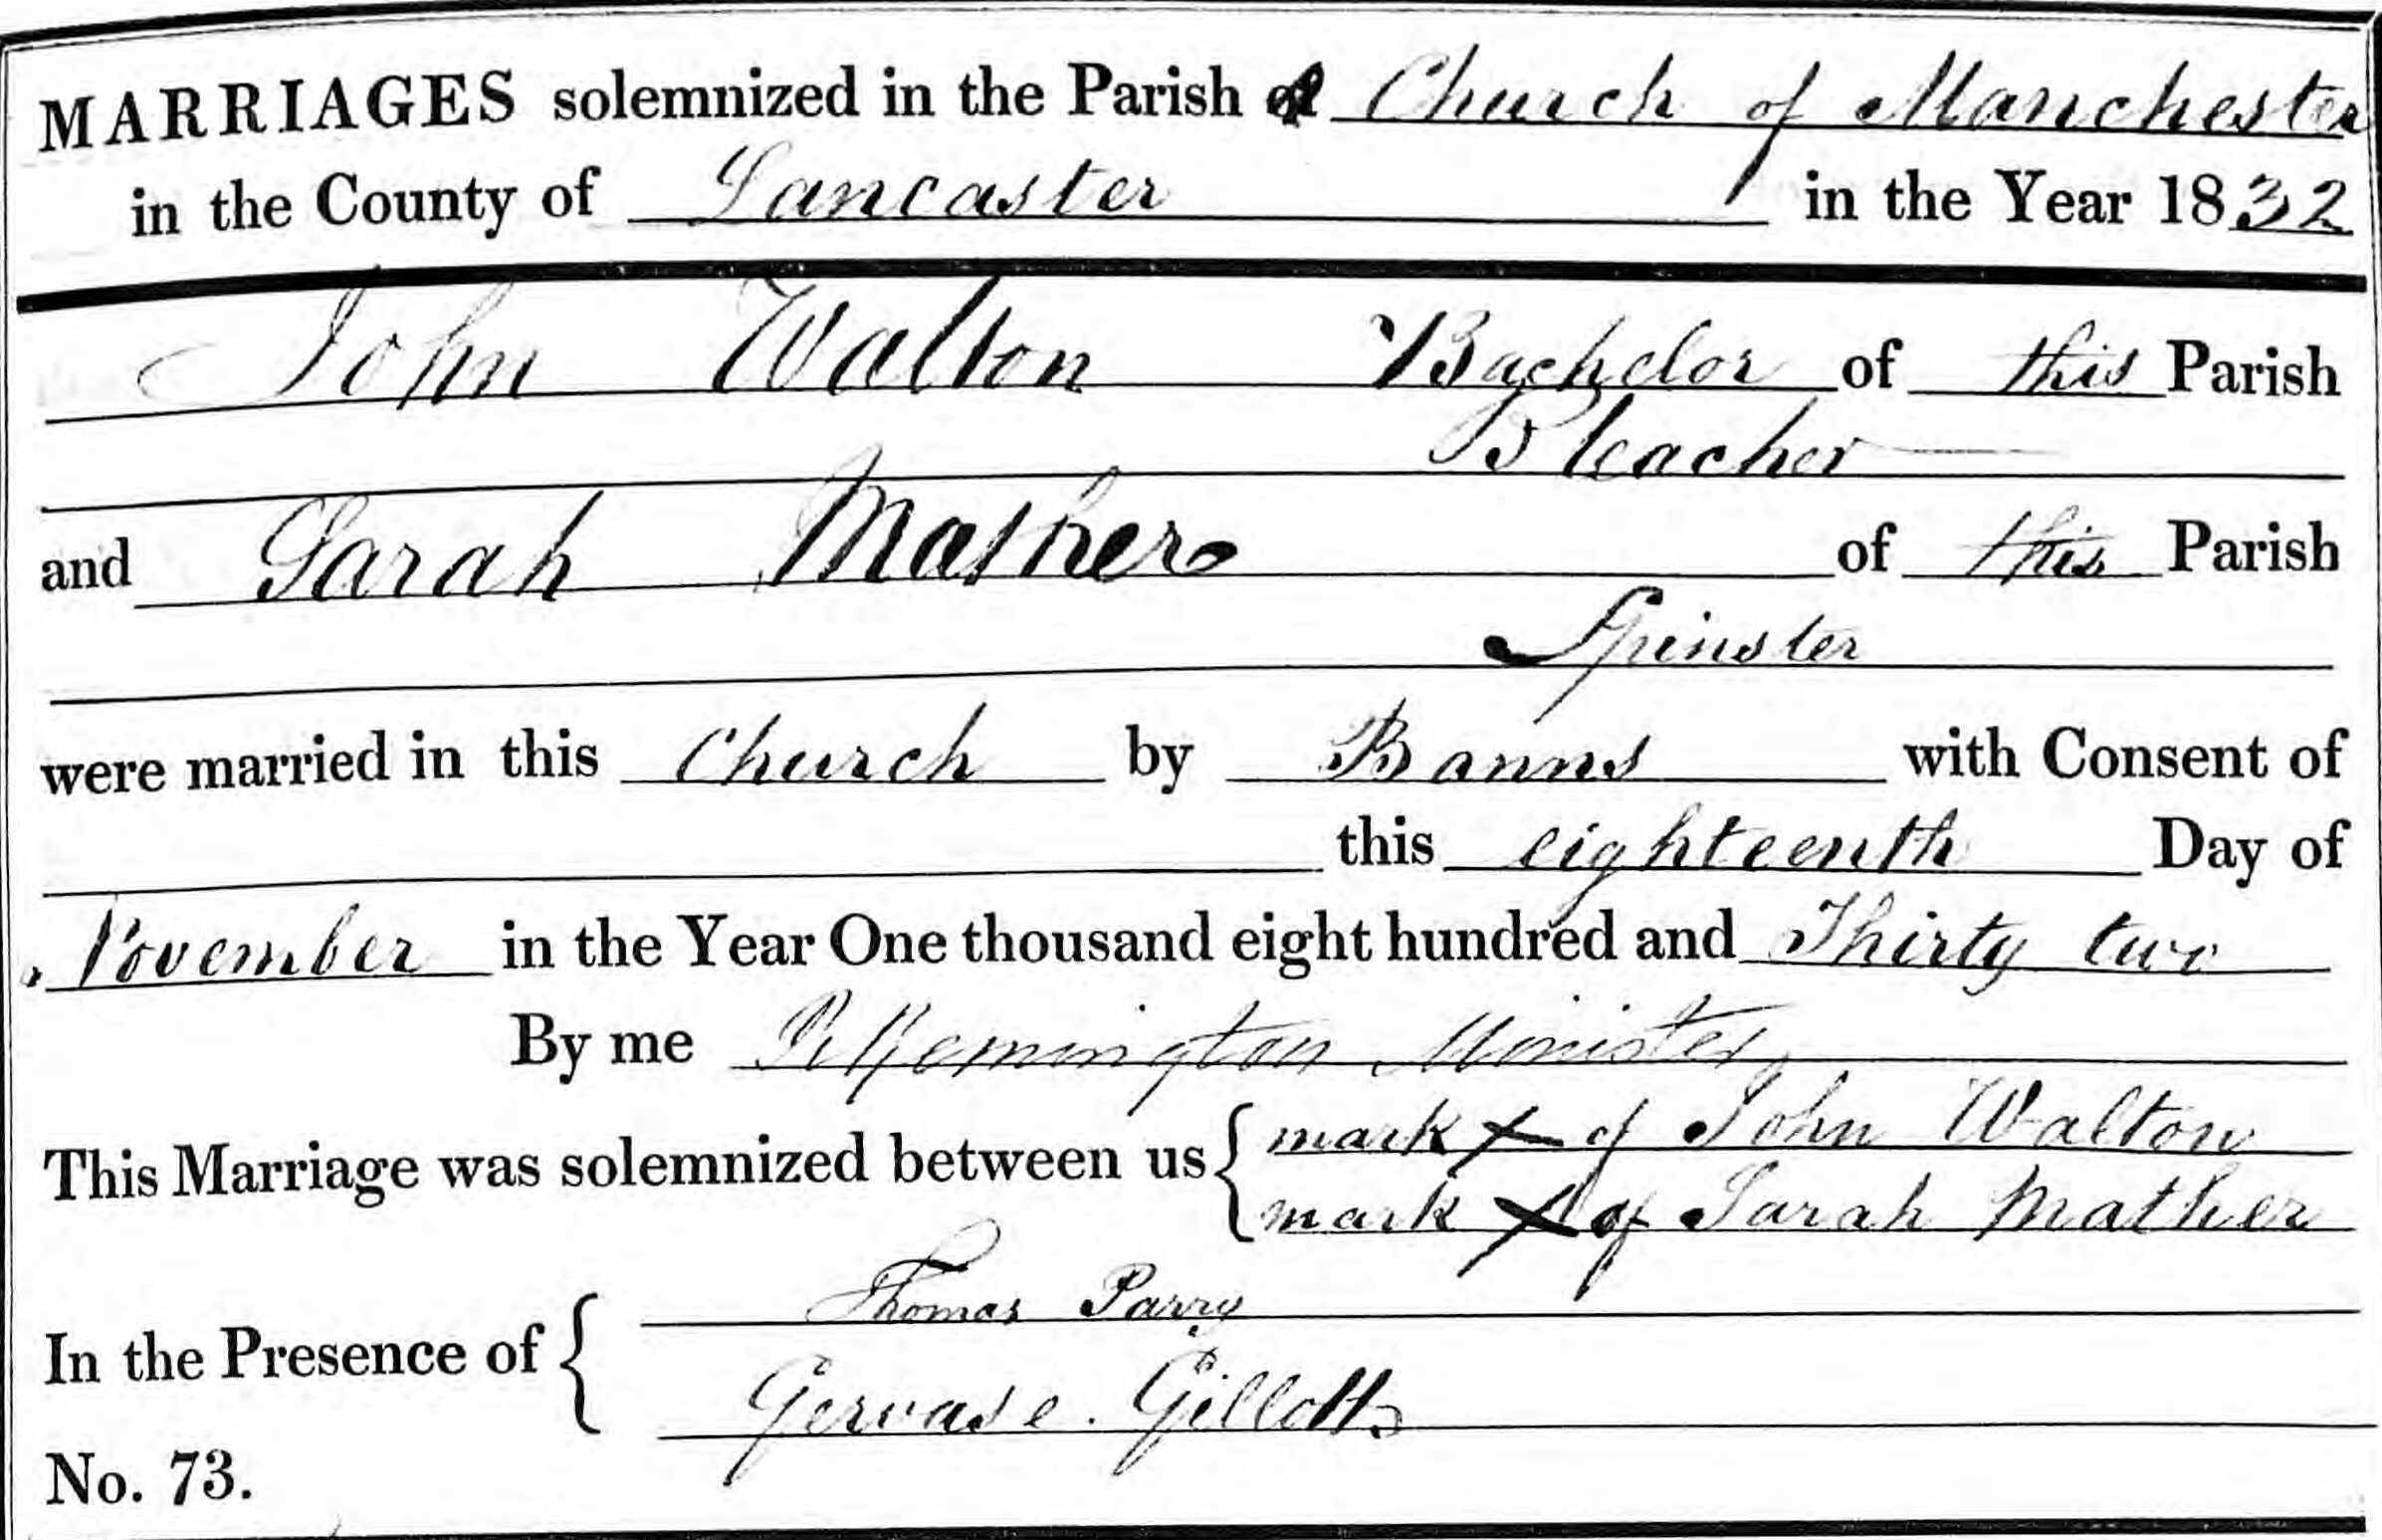 MARRIAGES solemnized in the Parish Church of Manchester
in the County of Lancaster in the Year 1832
John Walton Bachelor of this Parish
Bleacher
and Sarah Mather of this Parish
Spinster
were married in this Church by Banns with Consent of
this eighteenth Day of
November in the Year One thousand eight hundred and Thirty two
By me R Remington Minister
This Marriage was solemnized between us { mark X of John Walton
mark X of Sarah Mather
In the Presence of { Thomas Parry
Gervase Gillott
No. 73.